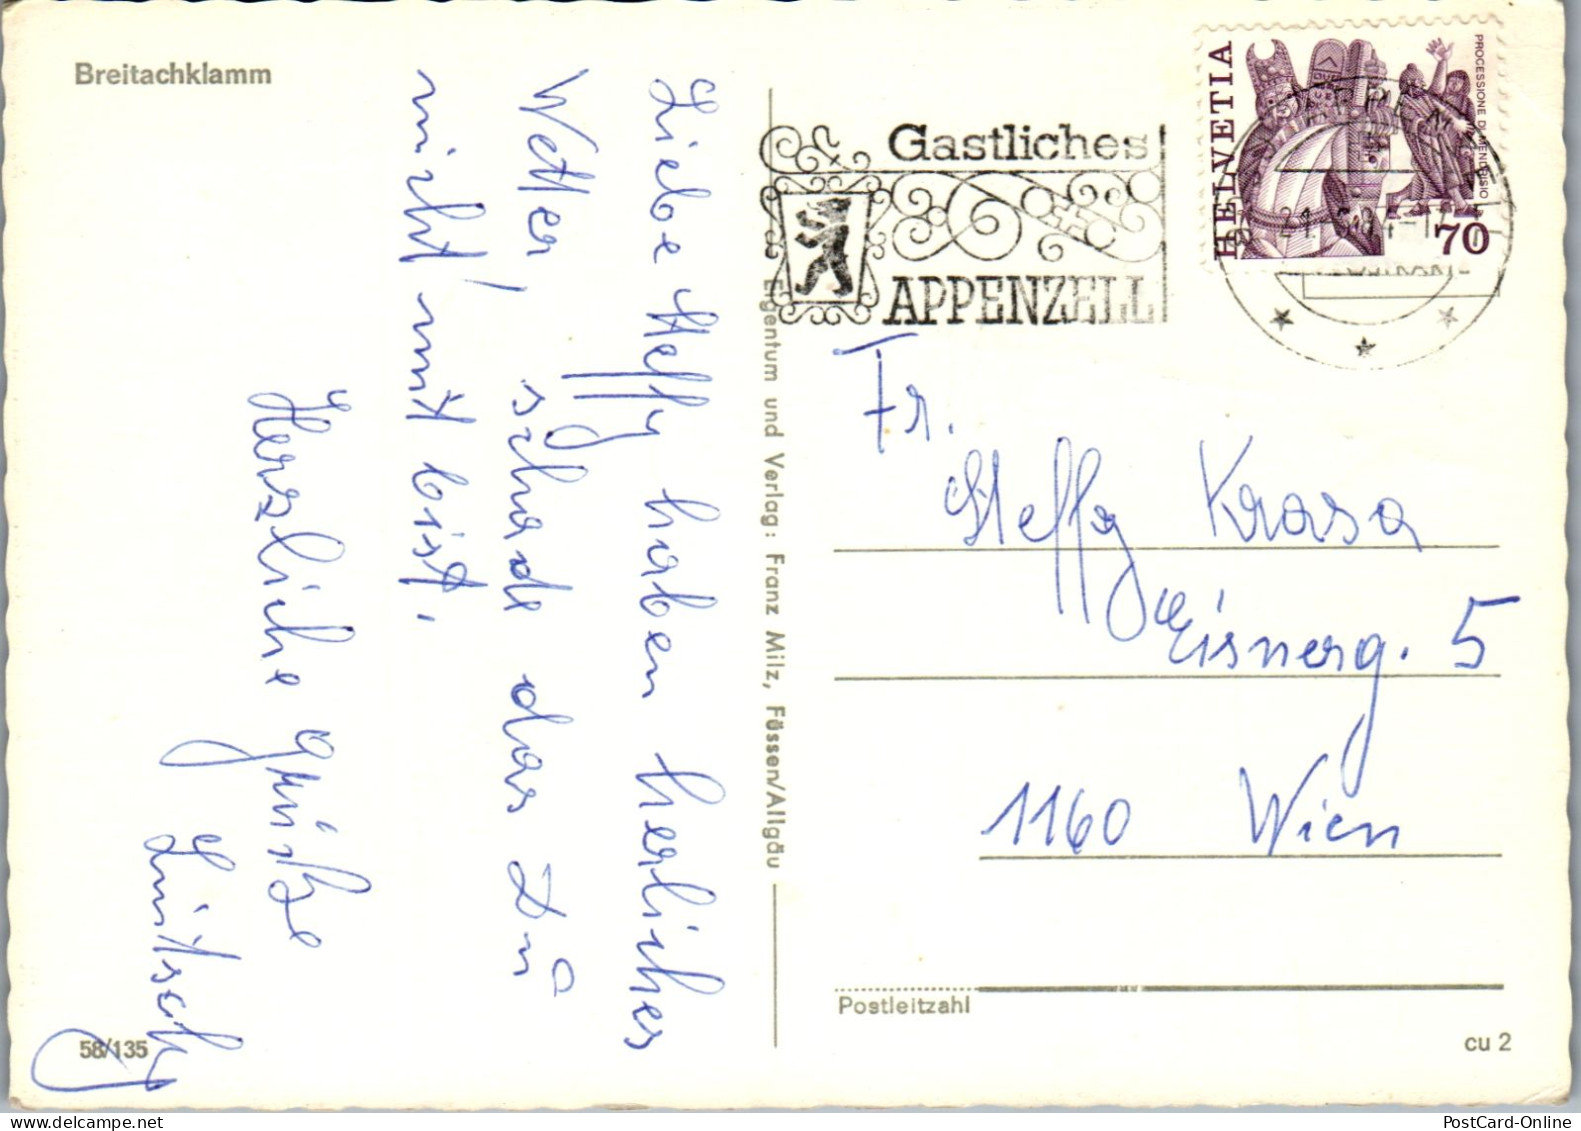 Breitachklamm
Liebe Steffy haben herliches
Wetter, schade das Du
nicht mit bist.
Herzliche grüße
58/135
Eigentum und Verlag: Franz Milz, Füssen/Allgäu
Gastliches
APPENZELL
HELVETIA
PROCESSIONE DI MENDRISIO
70
Fr.
Steffy Krasa
Eisnerg. 5
1160 Wien
Postleitzahl
cu 2
PostCard-Online